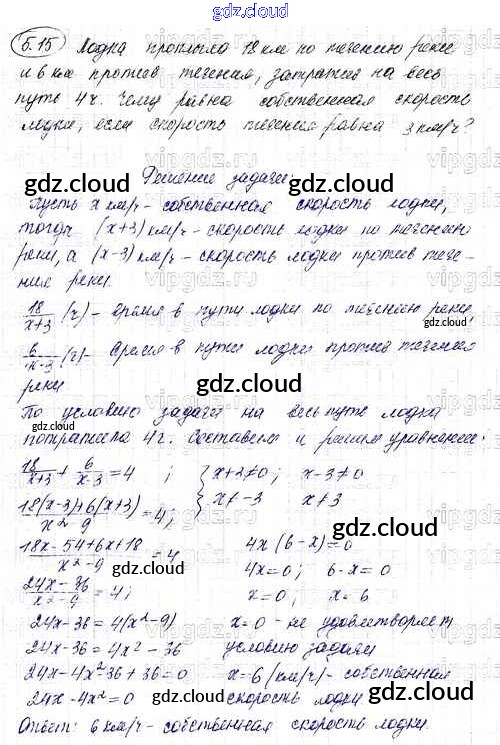 gdz.cloud
5.15 Лодка проплыла 18 км по течению реки
и 6 км против течения, затратив на весь
путь 4 ч. Чему равна собственная скорость
лодки, если скорость течения равна 3 км/ч?
Решение задачи:
Пусть x км/ч - собственная скорость лодки,
тогда (x+3) км/ч - скорость лодки по течению
реки, а (x-3) км/ч - скорость лодки против тече-
ния реки.
18/(x+3) (ч) - время в пути лодки по течению реки,
6/(x-3) (ч) - время в пути лодки против течения
реки
По условию задачи на весь путь лодка
потратила 4 ч. Составим и решим уравнение:
18/(x+3) + 6/(x-3) = 4 ; { x+3≠0; x-3≠0
(18(x-3)+6(x+3))/(x²-9) = 4; x≠-3 x≠3
(18x-54+6x+18)/(x²-9) = 4 4x(6-x)=0
(24x-36)/(x²-9) = 4; 4x=0; 6-x=0
x=0; x=6
24x-36=4(x²-9) x=0 - не удовлетворяет
24x-36=4x²-36 условию задачи
24x-4x²-36+36=0 x=6 (км/ч) - собственная
24x-4x²=0 скорость лодки
Ответ: 6 км/ч - собственная скорость лодки.
gdz.cloud
gdz.cloud
gdz.cloud
gdz.cloud
gdz.cloud
gdz.cloud
gdz.cloud
gdz.cloud
gdz.cloud